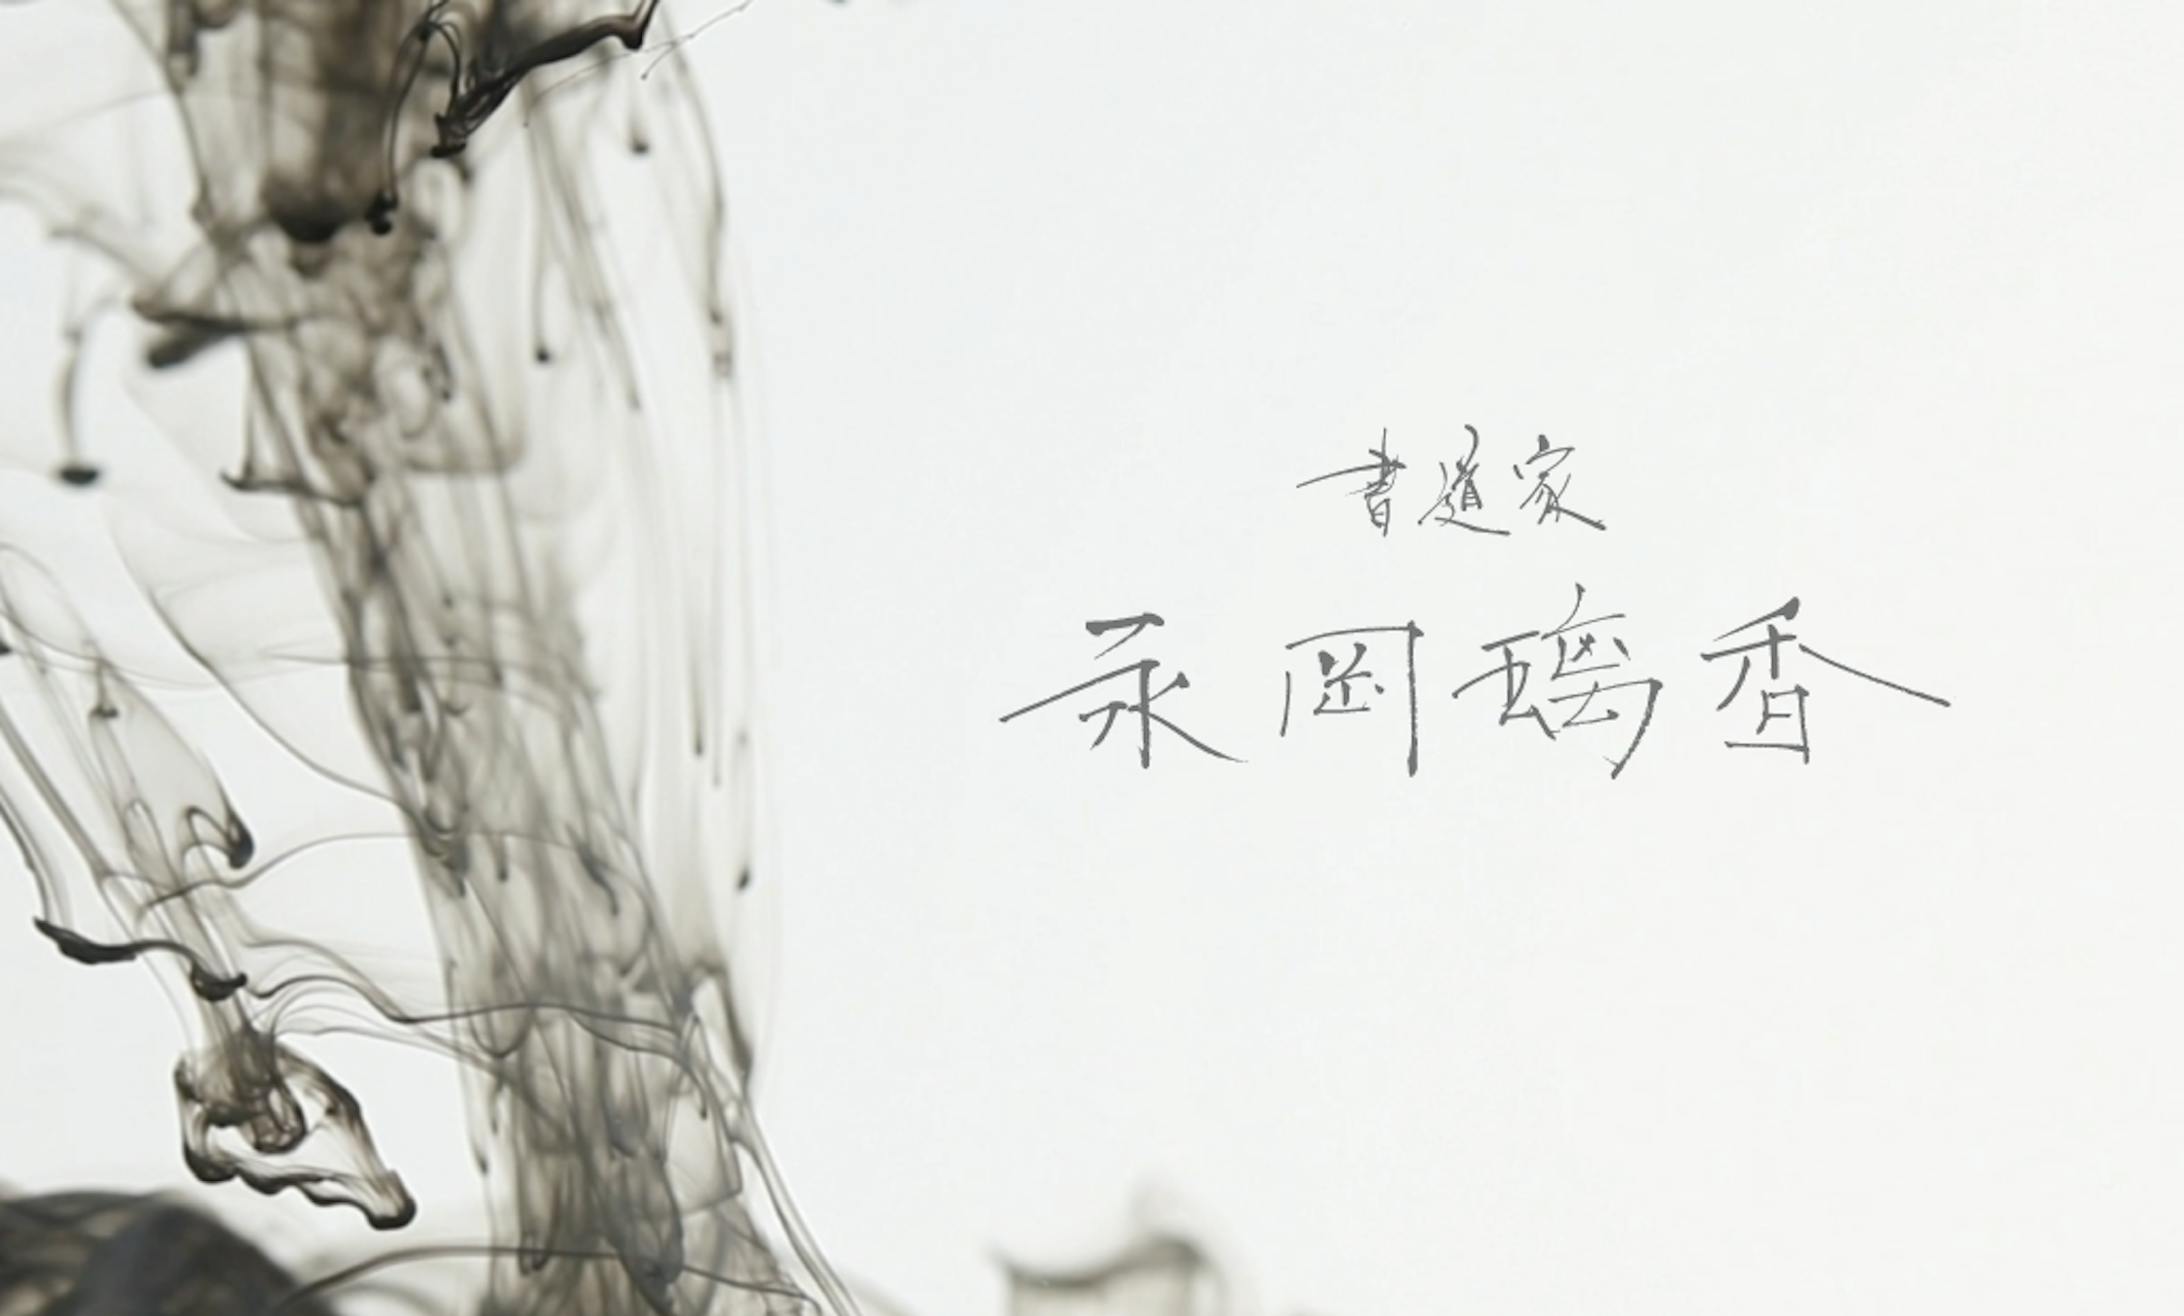 書道家
永岡璃香